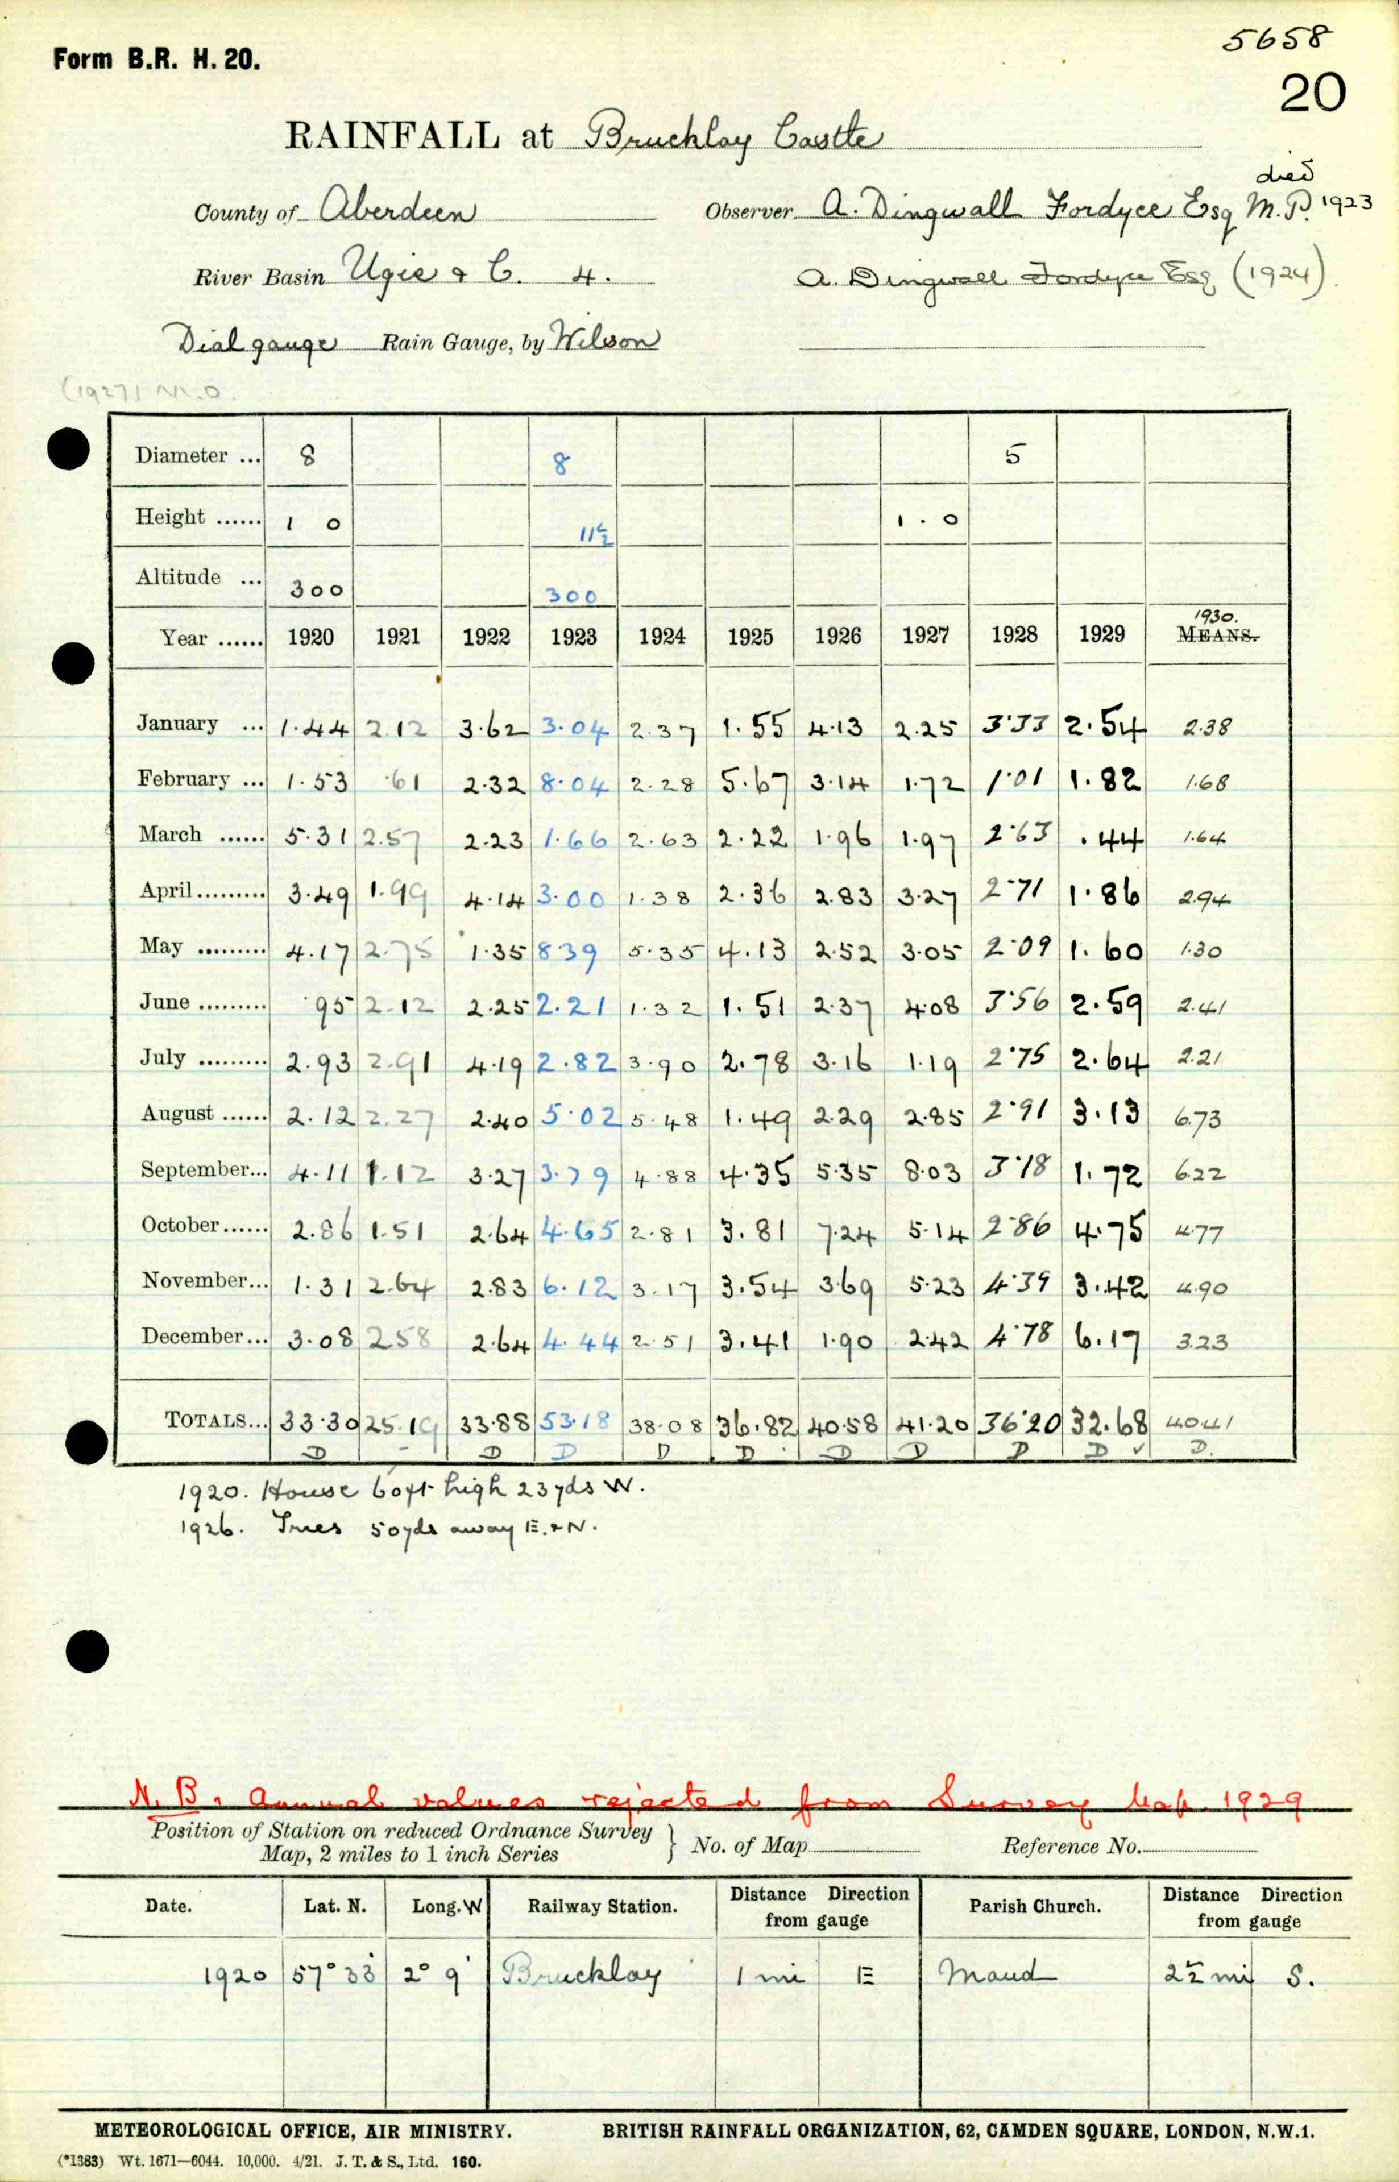 5658
Form B.R. H. 20.
20
RAINFALL at Brucklay Castle
died
County of Aberdeen Observer A. Dingwall Fordyce Esq M.P. 1923
River Basin Ugie & C. 4. A. Dingwall Fordyce Esq (1924)
Dial gauge Rain Gauge, by Wilson
(1927) M.O.
Diameter ... 8 8 5
Height ...... 1 0 11½ 1.0
Altitude ... 300 300
1930.
Year ...... 1920 1921 1922 1923 1924 1925 1926 1927 1928 1929 MEANS.
January ... 1.44 2.12 3.62 3.04 2.37 1.55 4.13 2.25 3.33 2.54 2.38
February ... 1.53 .61 2.32 8.04 2.28 5.67 3.14 1.72 1.01 1.82 1.68
March ...... 5.31 2.57 2.23 1.66 2.63 2.22 1.96 1.97 2.63 .44 1.64
April ......... 3.49 1.99 4.14 3.00 1.38 2.36 2.83 3.27 2.71 1.86 2.94
May ......... 4.17 2.75 1.35 8.39 5.35 4.13 2.52 3.05 2.09 1.60 1.30
June ......... .95 2.12 2.25 2.21 1.32 1.51 2.37 4.08 3.56 2.59 2.41
July ......... 2.93 2.91 4.19 2.82 3.90 2.78 3.16 1.19 2.75 2.64 2.21
August ...... 2.12 2.27 2.40 5.02 5.48 1.49 2.29 2.85 2.91 3.13 6.73
September... 4.11 1.12 3.27 3.79 4.88 4.35 5.35 8.03 3.18 1.72 6.22
October...... 2.86 1.51 2.64 4.65 2.81 3.81 7.24 5.14 2.86 4.75 4.77
November... 1.31 2.64 2.83 6.12 3.17 3.54 3.69 5.23 4.39 3.42 4.90
December... 3.08 2.58 2.64 4.44 2.51 3.41 1.90 2.42 4.78 6.17 3.23
TOTALS... 33.30 25.19 33.88 53.18 38.08 36.82 40.58 41.20 36.20 32.68 40.41
D - D D D D D D D D ✓ D.
1920. House 60ft high 23yds W.
1926. Trees 50yds away E. & N.
N.B. Annual values rejected from Survey Map. 1929
Position of Station on reduced Ordnance Survey
Map, 2 miles to 1 inch Series } No. of Map Reference No.
Date. Lat. N. Long. W Railway Station. Distance Direction from gauge Parish Church. Distance Direction from gauge
1920 57° 33' 2° 9' Brucklay 1 mi E Maud 2½ mi S.
METEOROLOGICAL OFFICE, AIR MINISTRY. BRITISH RAINFALL ORGANIZATION, 62, CAMDEN SQUARE, LONDON, N.W.1.
(*1383) Wt. 1671—6044. 10,000. 4/21. J. T. & S., Ltd. 160.